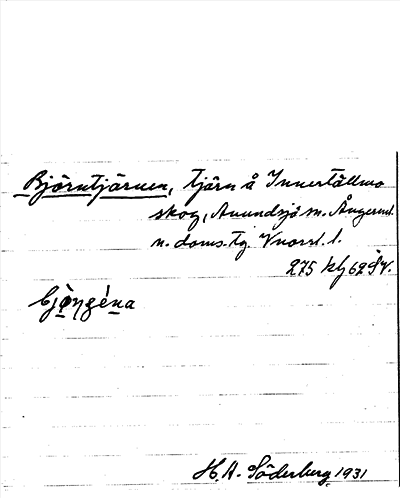 Björntjärnen, tjärn å Innertällmo
skog, Anundsjö sn. Ångerml.
n. doms. tg. Vnorrl. l.
275 kfg 62 SV.
bjö̀ṇʒéna
H. A. Söderberg 1931